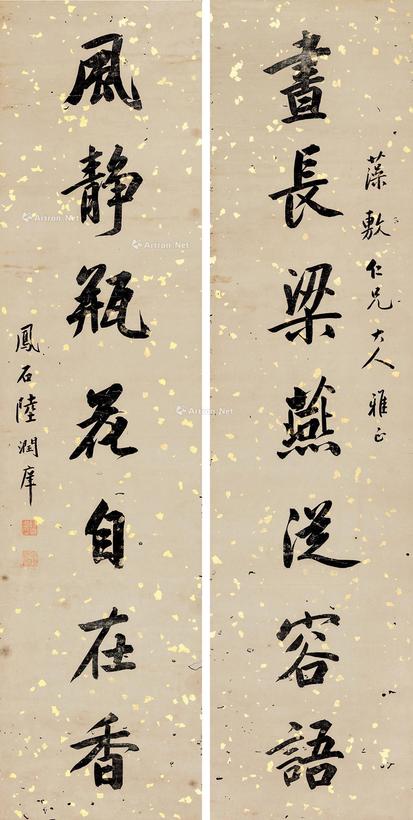 藻敷仁兄大人雅正
晝長梁燕從容語
風静瓶花自在香
鳳石陸潤庠
Artron.Net
Artron.Net
Artron.Net